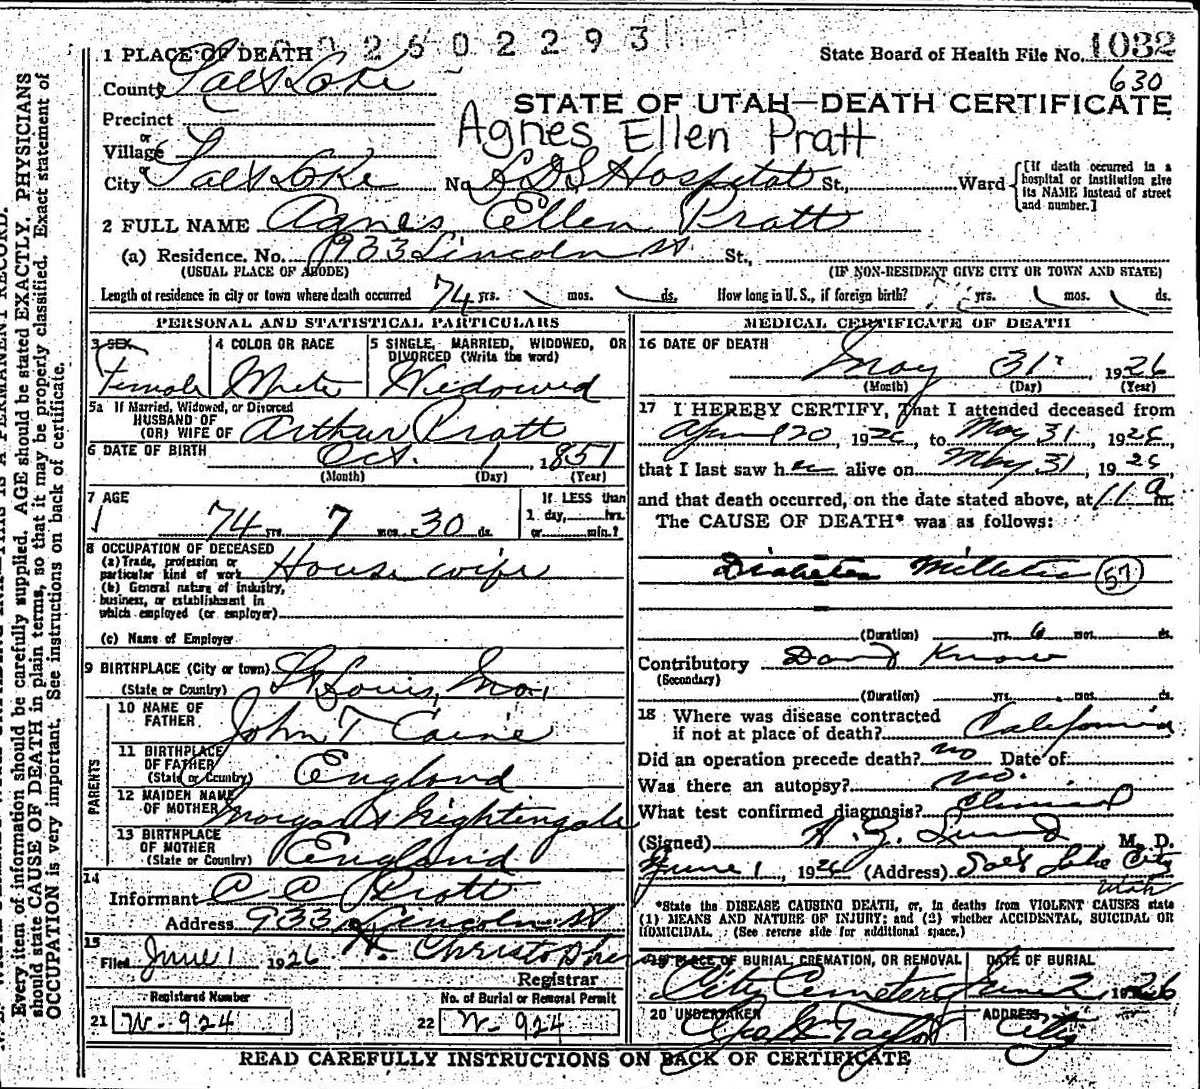 0 2 6 0 2 2 9 3
1 PLACE OF DEATH
State Board of Health File No. 1032
630
County Salt Lake
STATE OF UTAH—DEATH CERTIFICATE
Precinct
or
Village
Agnes Ellen Pratt
or
City Salt Lake No. L D S Hospital St., Ward
[If death occurred in a hospital or institution give its NAME instead of street and number.]
2 FULL NAME Agnes Ellen Pratt
(a) Residence. No. 933 Lincoln St St.,
(USUAL PLACE OF ABODE) (IF NON-RESIDENT GIVE CITY OR TOWN AND STATE)
Length of residence in city or town where death occurred 74 yrs. mos. ds. How long in U.S., if foreign birth? yrs. mos. ds.
PERSONAL AND STATISTICAL PARTICULARS
3 SEX
Female
4 COLOR OR RACE
White
5 SINGLE, MARRIED, WIDOWED, OR DIVORCED (Write the word)
Widowed
5a If Married, Widowed, or Divorced
HUSBAND OF
(OR) WIFE OF Arthur Pratt
6 DATE OF BIRTH Oct. 1 1851
(Month) (Day) (Year)
7 AGE
74 yrs. 7 mos. 30 ds.
If LESS than
1 day, hrs.
or min.?
8 OCCUPATION OF DECEASED
(a) Trade, profession or
particular kind of work House wife
(b) General nature of industry,
business, or establishment in
which employed (or employer)
(c) Name of Employer
9 BIRTHPLACE (City or town) St Louis, Mo.
(State or Country)
PARENTS
10 NAME OF
FATHER John T Caine
11 BIRTHPLACE
OF FATHER
(State or Country) England
12 MAIDEN NAME
OF MOTHER Nightingale
13 BIRTHPLACE
OF MOTHER
(State or Country) England
14
Informant A A Pratt
Address 933 Lincoln St
15
Filed June 1 1926 H.
Registrar
Registered Number
21 W-924
No. of Burial or Removal Permit
22 W-924
MEDICAL CERTIFICATE OF DEATH
16 DATE OF DEATH
May 31 1926
(Month) (Day) (Year)
17 I HEREBY CERTIFY, That I attended deceased from
April 20, 1926, to May 31, 1926,
that I last saw her alive on May 31, 1926
and that death occurred, on the date stated above, at 11 a m.
The CAUSE OF DEATH* was as follows:
Diabetes Millitis (57)
(Duration) yrs. 6 mos. ds.
Contributory Dont Know
(Secondary)
(Duration) yrs. mos. ds.
18 Where was disease contracted
if not at place of death? California
Did an operation precede death? no Date of
Was there an autopsy? no.
What test confirmed diagnosis? Clinical
(Signed) M. D.
June 1, 1926 (Address) Salt Lake City
Utah
*State the DISEASE CAUSING DEATH, or, in deaths from VIOLENT CAUSES state
(1) MEANS AND NATURE OF INJURY; and (2) whether ACCIDENTAL, SUICIDAL OR
HOMICIDAL. (See reverse side for additional space.)
19 PLACE OF BURIAL, CREMATION, OR REMOVAL
City Cemetery
DATE OF BURIAL
June 2 1926
20 UNDERTAKER
Taylor
ADDRESS
City
READ CAREFULLY INSTRUCTIONS ON BACK OF CERTIFICATE
IS A PERMANENT RECORD.
Every item of information should be carefully supplied. AGE should be stated EXACTLY. PHYSICIANS
should state CAUSE OF DEATH in plain terms, so that it may be properly classified. Exact statement of
OCCUPATION is very important. See instructions on back of certificate.